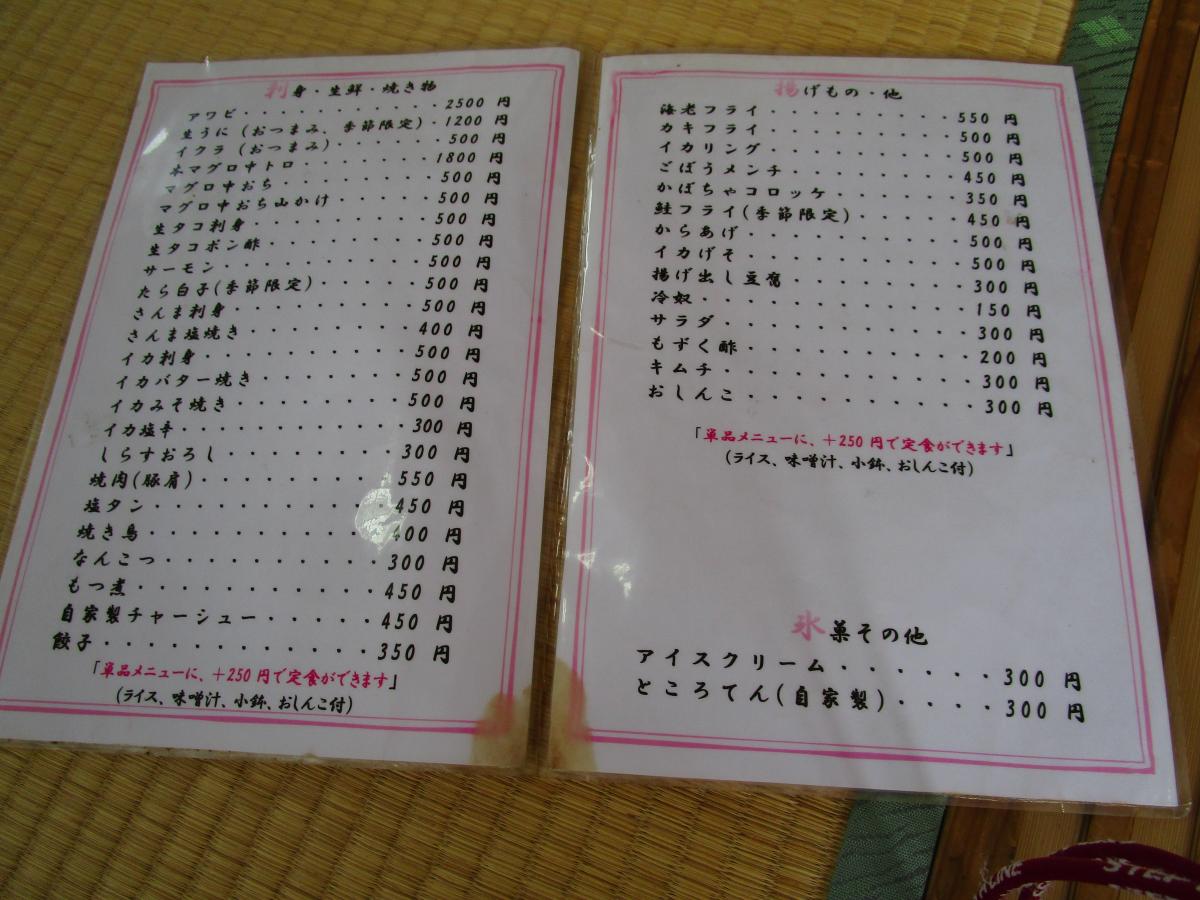 刺身・生鮮・焼き物
アワビ・・・・・・・・・・・2500 円
生うに（おつまみ、季節限定）・1200 円
イクラ（おつまみ）・・・・・・500 円
本マグロ中トロ・・・・・・・1800 円
マグロ中おち・・・・・・・・・500 円
マグロ中おち山かけ・・・・・・500 円
生タコ刺身・・・・・・・・・・500 円
生タコポン酢・・・・・・・・・500 円
サーモン・・・・・・・・・・・500 円
たら白子(季節限定)・・・・・・500 円
さんま刺身・・・・・・・・・・500 円
さんま塩焼き・・・・・・・・・400 円
イカ刺身・・・・・・・・・・・500 円
イカバター焼き・・・・・・・・500 円
イカみそ焼き・・・・・・・・・500 円
イカ塩辛・・・・・・・・・・・300 円
しらすおろし・・・・・・・・・300 円
焼肉(豚肩)・・・・・・・・・・550 円
塩タン・・・・・・・・・・・・450 円
焼き鳥・・・・・・・・・・・・400 円
なんこつ・・・・・・・・・・・300 円
もつ煮・・・・・・・・・・・・450 円
自家製チャーシュー・・・・・・450 円
餃子・・・・・・・・・・・・・350 円
「単品メニューに、＋250 円で定食ができます」
（ライス、味噌汁、小鉢、おしんこ付）
揚げもの・他
海老フライ・・・・・・・・・550 円
カキフライ・・・・・・・・・500 円
イカリング・・・・・・・・・500 円
ごぼうメンチ・・・・・・・・450 円
かぼちゃコロッケ・・・・・・350 円
鮭フライ(季節限定)・・・・・450 円
からあげ・・・・・・・・・・500 円
イカげそ・・・・・・・・・・500 円
揚げ出し豆腐・・・・・・・・300 円
冷奴・・・・・・・・・・・・150 円
サラダ・・・・・・・・・・・300 円
もずく酢・・・・・・・・・・200 円
キムチ・・・・・・・・・・・300 円
おしんこ・・・・・・・・・・300 円
「単品メニューに、＋250 円で定食ができます」
（ライス、味噌汁、小鉢、おしんこ付）
氷菓その他
アイスクリーム・・・・・・300 円
ところてん(自家製)・・・・300 円